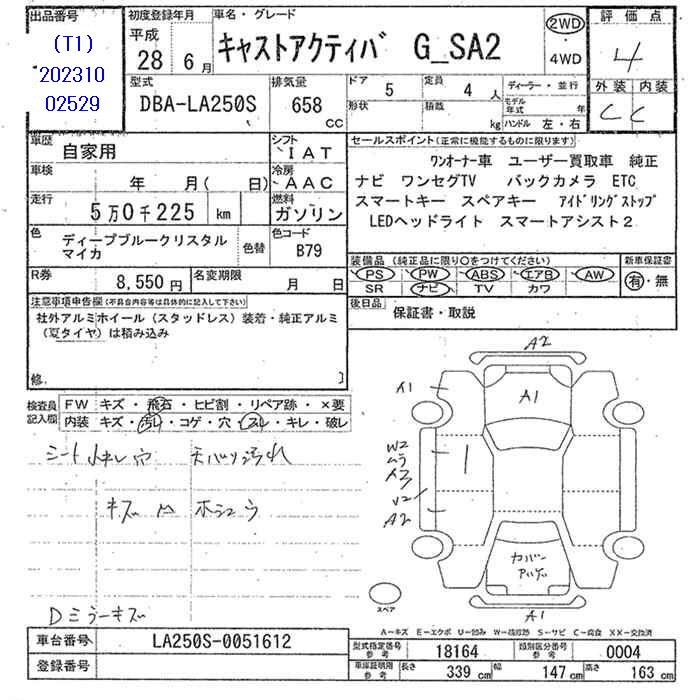 出品番号
(T1)
202310
02529
初度登録年月
平成
28 年 6 月
車名・グレード
キャストアクティバ G_SA2
2WD
・
4WD
評価点
4
外装 内装
C C
型式
DBA-LA250S
排気量
658
CC
ドア 5
定員 4 人
形状
積載 kg
ディーラー・並行
モデル年式 年
ハンドル 左・右
車歴
自家用
シフト
IAT
車検
年 月( 日)
冷房
AAC
走行
5万0千225 km
燃料
ガソリン
色
ディープブルークリスタル
マイカ
色替
色コード
B79
R券
8,550円
名変期限
月 日
セールスポイント(正常に機能するものに限ります)
ワンオーナー車 ユーザー買取車 純正
ナビ ワンセグTV バックカメラ ETC
スマートキー スペアキー アイドリングストップ
LEDヘッドライト スマートアシスト2
装備品(純正品に限り○をつけてください)
PS PW ABS エアB AW
SR ナビ TV カワ
新車保証書
有・無
後日品
保証書・取説
注意事項申告欄(不具合内容等は具体的に記入して下さい)
社外アルミホイール(スタッドレス)装着・純正アルミ
(夏タイヤ)は積み込み
修.
検査員
記入欄
FW キズ・飛石・ヒビ割・リペア跡・×要
内装 キズ・汚レ・コゲ・穴・スレ・キレ・破レ
シート 穴
天バリ汚れ
キズ 凹
Dミラーキズ
A2
A1
A1
W2
ムラ
V2
A2
カバー
A1
スペア
A-キズ E-エクボ U-凹み W-補修跡 S-サビ C-腐食 XX-交換済
車台番号
LA250S-0051612
登録番号
型式指定番号
参考
18164
類別区分番号
参考
0004
車庫証明用
参考
長さ 339 cm
幅 147 cm
高さ 163 cm